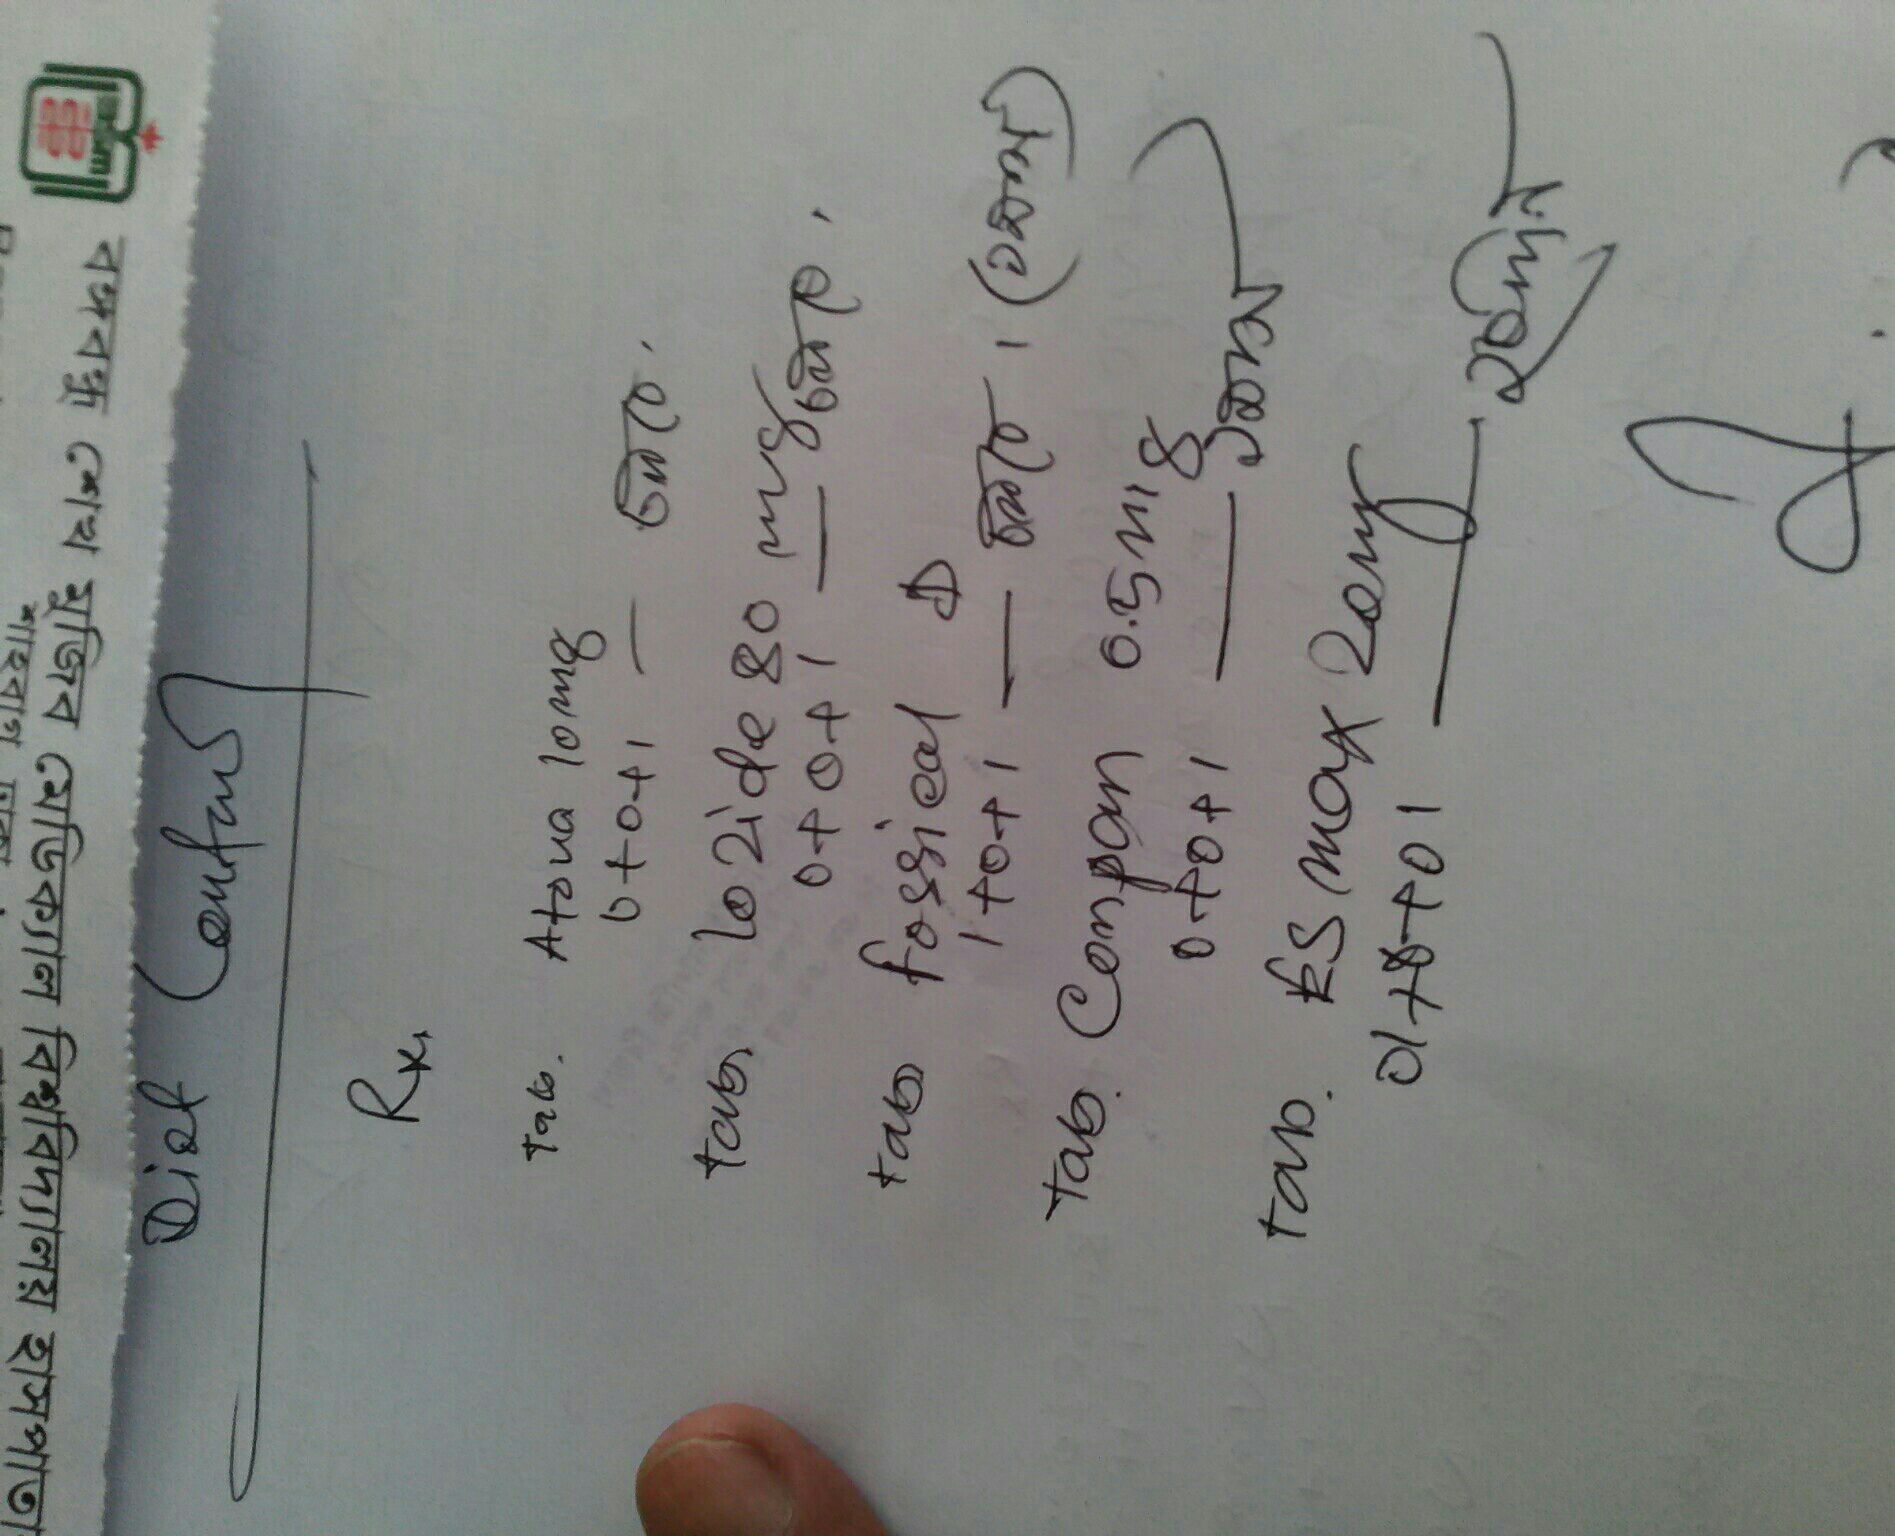 বঙ্গবন্ধু শেখ মুজিব মেডিক্যাল বিশ্ববিদ্যালয় হাসপাতাল
শাহবাগ ঢাকা
Diet Control
Rx,
Tab. Atova 10mg
0+0+1 — চলবে.
tab. lozide 80 mg
0+0+1 — চলবে.
tab fossical D
1+0+1 — চলবে। (১মাস)
Tab. Conpan 0.5mg
0+0+1 — ১মাস
tab. ES max 20mg
01+0+01